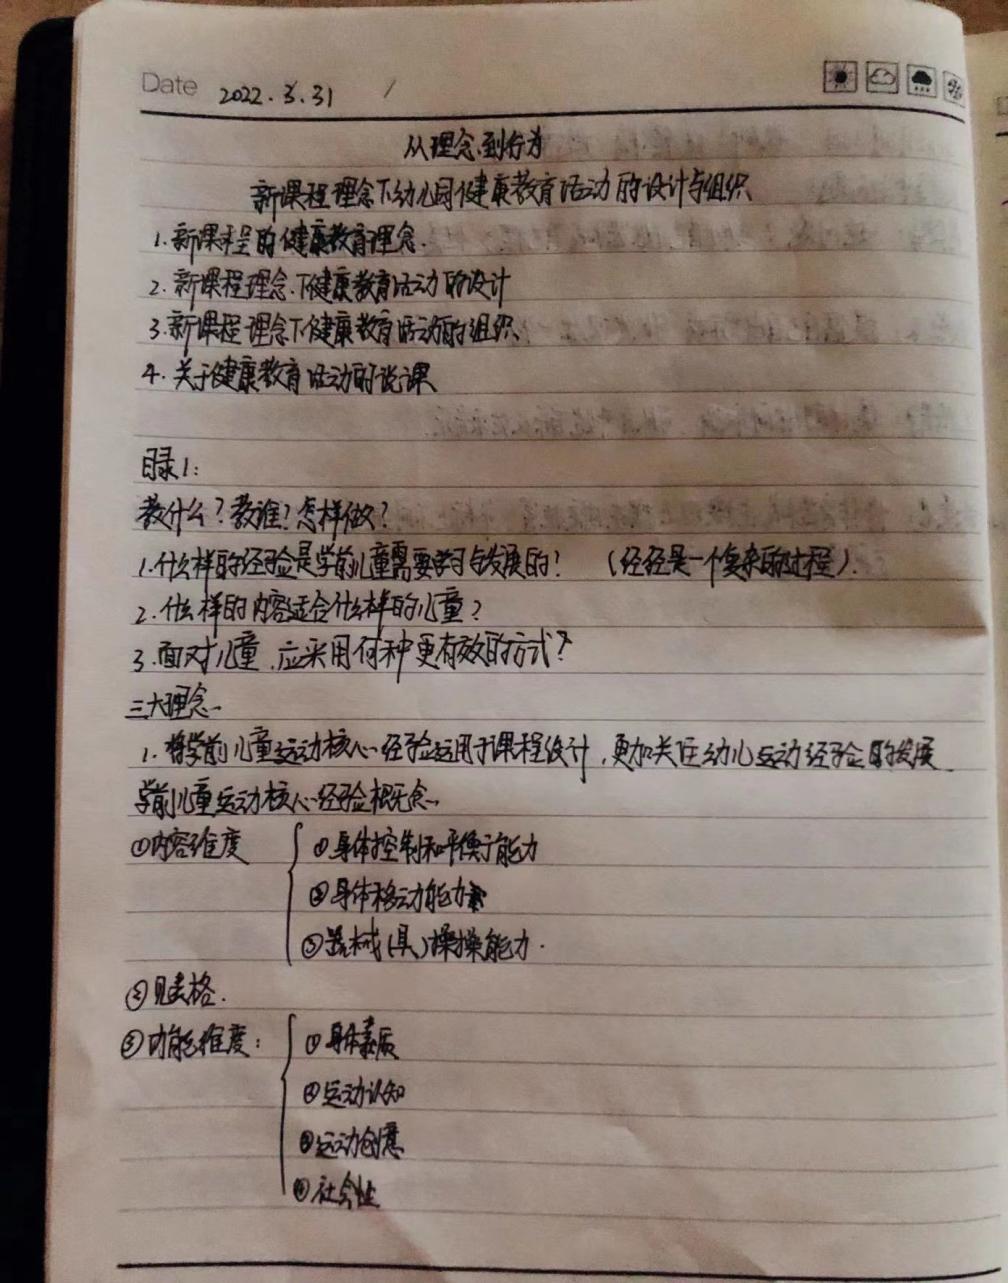 Date 2022.3.31
从理念到行为
新课程理念下幼儿园健康教育活动的设计与组织
1.新课程的健康教育理念.
2.新课程理念下健康教育活动的设计
3.新课程理念下健康教育活动的组织
4.关于健康教育活动的说课
目录1:
教什么?教谁?怎样做?
1.什么样的经验是学前儿童需要学习与发展的? (经经是一个复杂的过程).
2.什么样的内容适合什么样的儿童?
3.面对儿童,应采用何种更有效的方式?
三大理念
1.将学前儿童运动核心经验运用于课程设计,更加关注幼儿运动经验的发展
学前儿童运动核心经验概念
①内容维度 ①身体控制和平衡能力
②身体移动能力
③器械(具)操操能力.
②见表格.
③功能维度: ①身体素质
②运动认知
③运动创意
④社会性